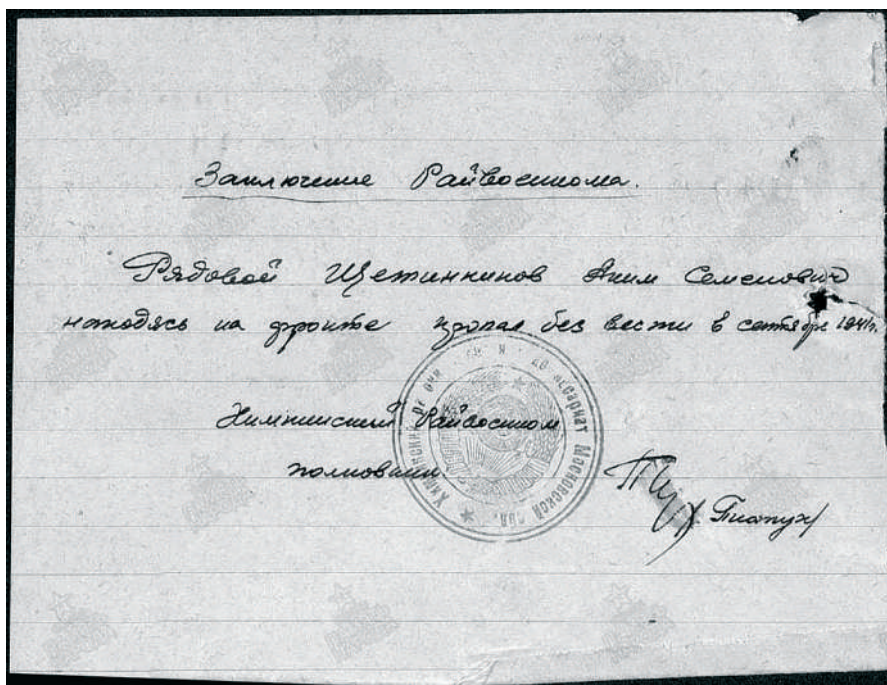 Заключение Райвоенкома.
Рядовой Щетинников Аким Семенович
находясь на фронте пропал без вести в сентябре 1941г.
Химкинский Райвоенком
полковник
Химкинский комиссариат Московской обл.